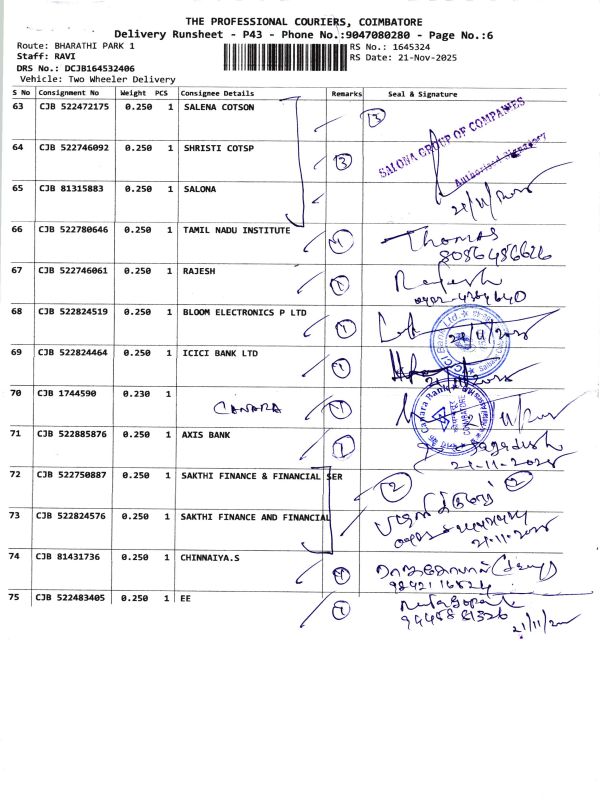 THE PROFESSIONAL COURIERS, COIMBATORE
Delivery Runsheet - P43 - Phone No.:9047080280 - Page No.:6
Route: BHARATHI PARK 1
RS No.: 1645324
Staff: RAVI
RS Date: 21-Nov-2025
DRS No.: DCJB164532406
Vehicle: Two Wheeler Delivery
S No Consignment No Weight PCS Consignee Details Remarks Seal & Signature
63 CJB 522472175 0.250 1 SALENA COTSON
3
SALONA GROUP OF COMPANIES
Authorised Signatory
64 CJB 522746092 0.250 1 SHRISTI COTSP
3
65 CJB 81315883 0.250 1 SALONA
66 CJB 522780646 0.250 1 TAMIL NADU INSTITUTE 1 Thomas
8086486626
67 CJB 522746061 0.250 1 RAJESH 1 Rajesh
68 CJB 522824519 0.250 1 BLOOM ELECTRONICS P LTD 1
69 CJB 522824464 0.250 1 ICICI BANK LTD 1
70 CJB 1744590 0.230 1 CANARA 1
Canara Bank
COIMBATORE
71 CJB 522885876 0.250 1 AXIS BANK 1 Jagadish
21-11-2025
72 CJB 522750887 0.250 1 SAKTHI FINANCE & FINANCIAL SER 2 2
73 CJB 522824576 0.250 1 SAKTHI FINANCE AND FINANCIAL
21-11-2025
74 CJB 81431736 0.250 1 CHINNAIYA.S 1
75 CJB 522483405 0.250 1 EE 1
9445881326